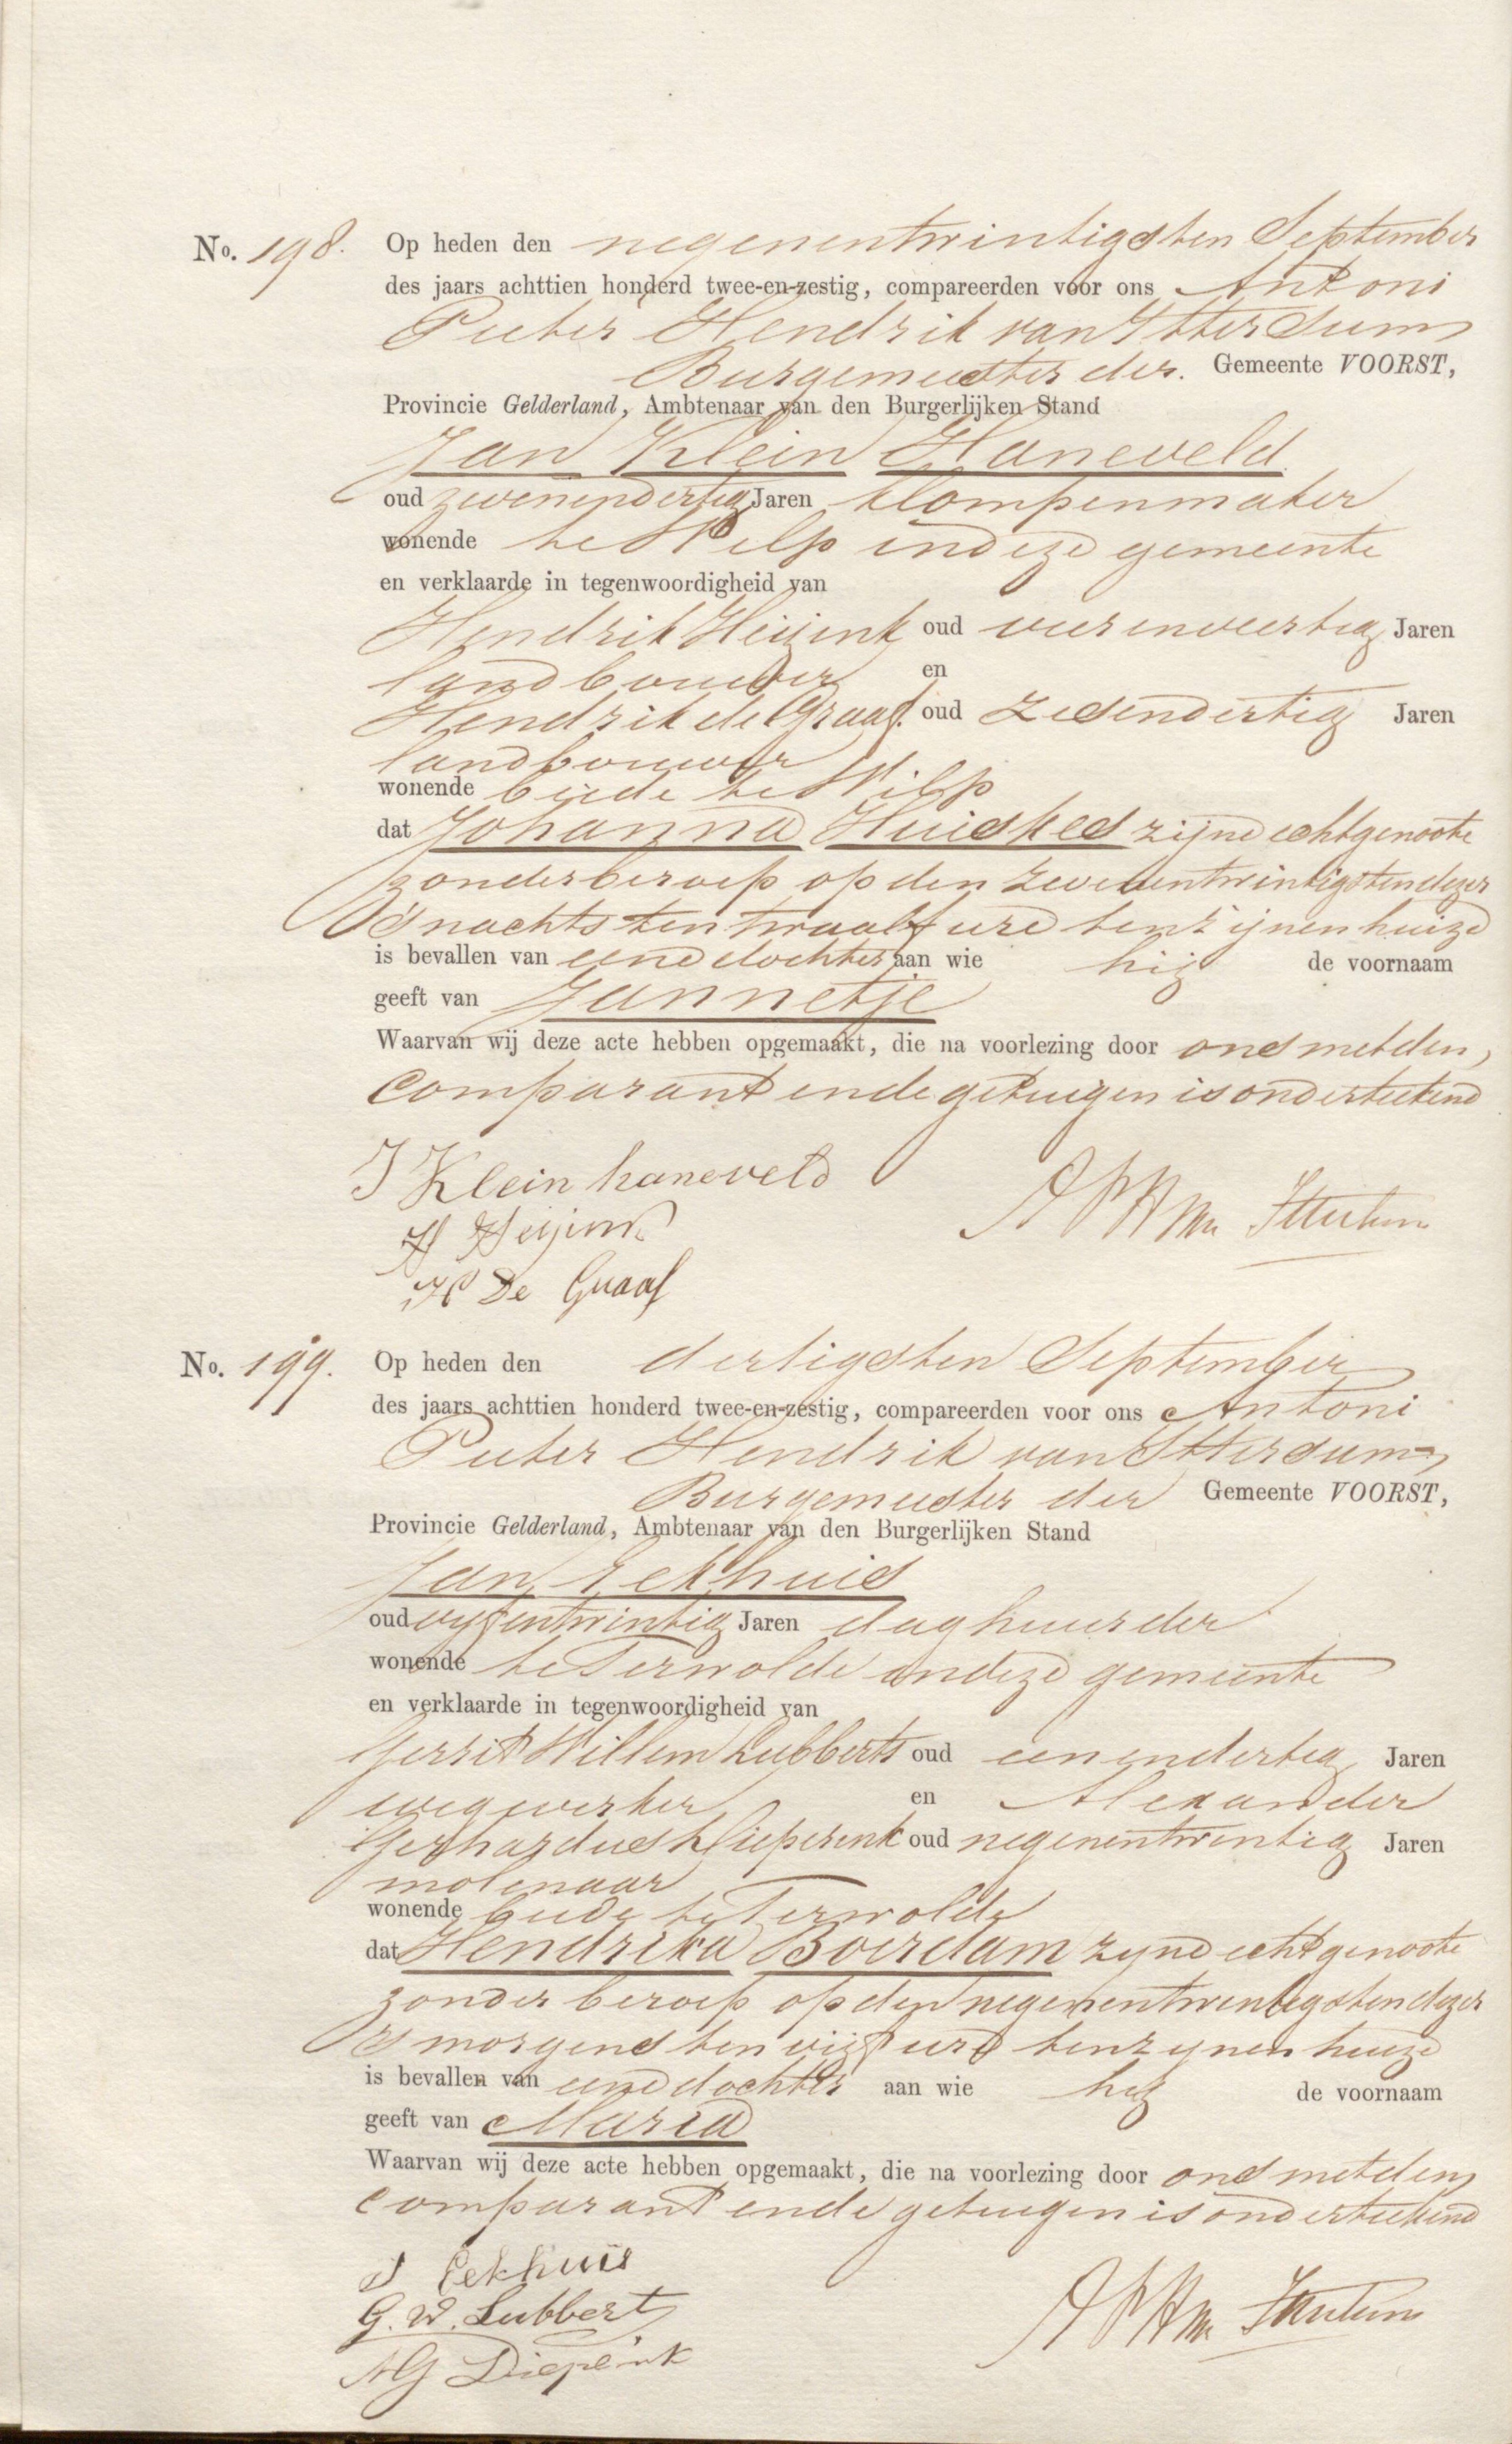 No. 198. Op heden den negenentwintigsten September
des jaars achttien honderd twee-en-zestig, compareerden voor ons Antoni
Pieter Hendrik van Ittersum
Burgemeester der. Gemeente VOORST,
Provincie Gelderland, Ambtenaar van den Burgerlijken Stand
Jan Klein Haneveld
oud zevenendertig Jaren klompenmaker
wonende te Wilp in deze gemeente
en verklaarde in tegenwoordigheid van
Hendrik Heijink oud vierenveertig Jaren
landbouwer en
Hendrik de Graaf. oud zesendertig Jaren
landbouwer
wonende beide te Wilp
dat Johanna Huiskes zijne echtgenoote
zonder beroep op den zevenentwintigsten dezer
's nachts ten twaalf ure ten zijnen huize
is bevallen van eene dochter aan wie hij de voornaam
geeft van Jannetje
Waarvan wij deze acte hebben opgemaakt, die na voorlezing door ons met den
comparant en de getuigen is onderteekend
J Klein haneveld
H Heijink
H De Graaf
No. 199. Op heden den dertigsten September
des jaars achttien honderd twee-en-zestig, compareerden voor ons Antoni
Pieter Hendrik van Ittersum
Burgemeester der Gemeente VOORST,
Provincie Gelderland, Ambtenaar van den Burgerlijken Stand
Jan Eekhuis
oud vyfentwintig Jaren daghuurder
wonende te Terwolde in deze gemeente
en verklaarde in tegenwoordigheid van
Gerrit Willem Lubberts oud eenendertig Jaren
wegwerker en Alexander
Gerhardus oud negenentwintig Jaren
molenaar
wonende beide te Terwolde
dat Hendrika Boerdam zyne echtgenoote
zonder beroep op den negenentwintigsten dezer
's morgens ten vijf ure ten zynen huize
is bevallen van eene dochter aan wie hij de voornaam
geeft van Maria
Waarvan wij deze acte hebben opgemaakt, die na voorlezing door ons met den
comparant en de getuigen is onderteekend
J Eekhuis
G. W. Lubberts
AG Dieprink